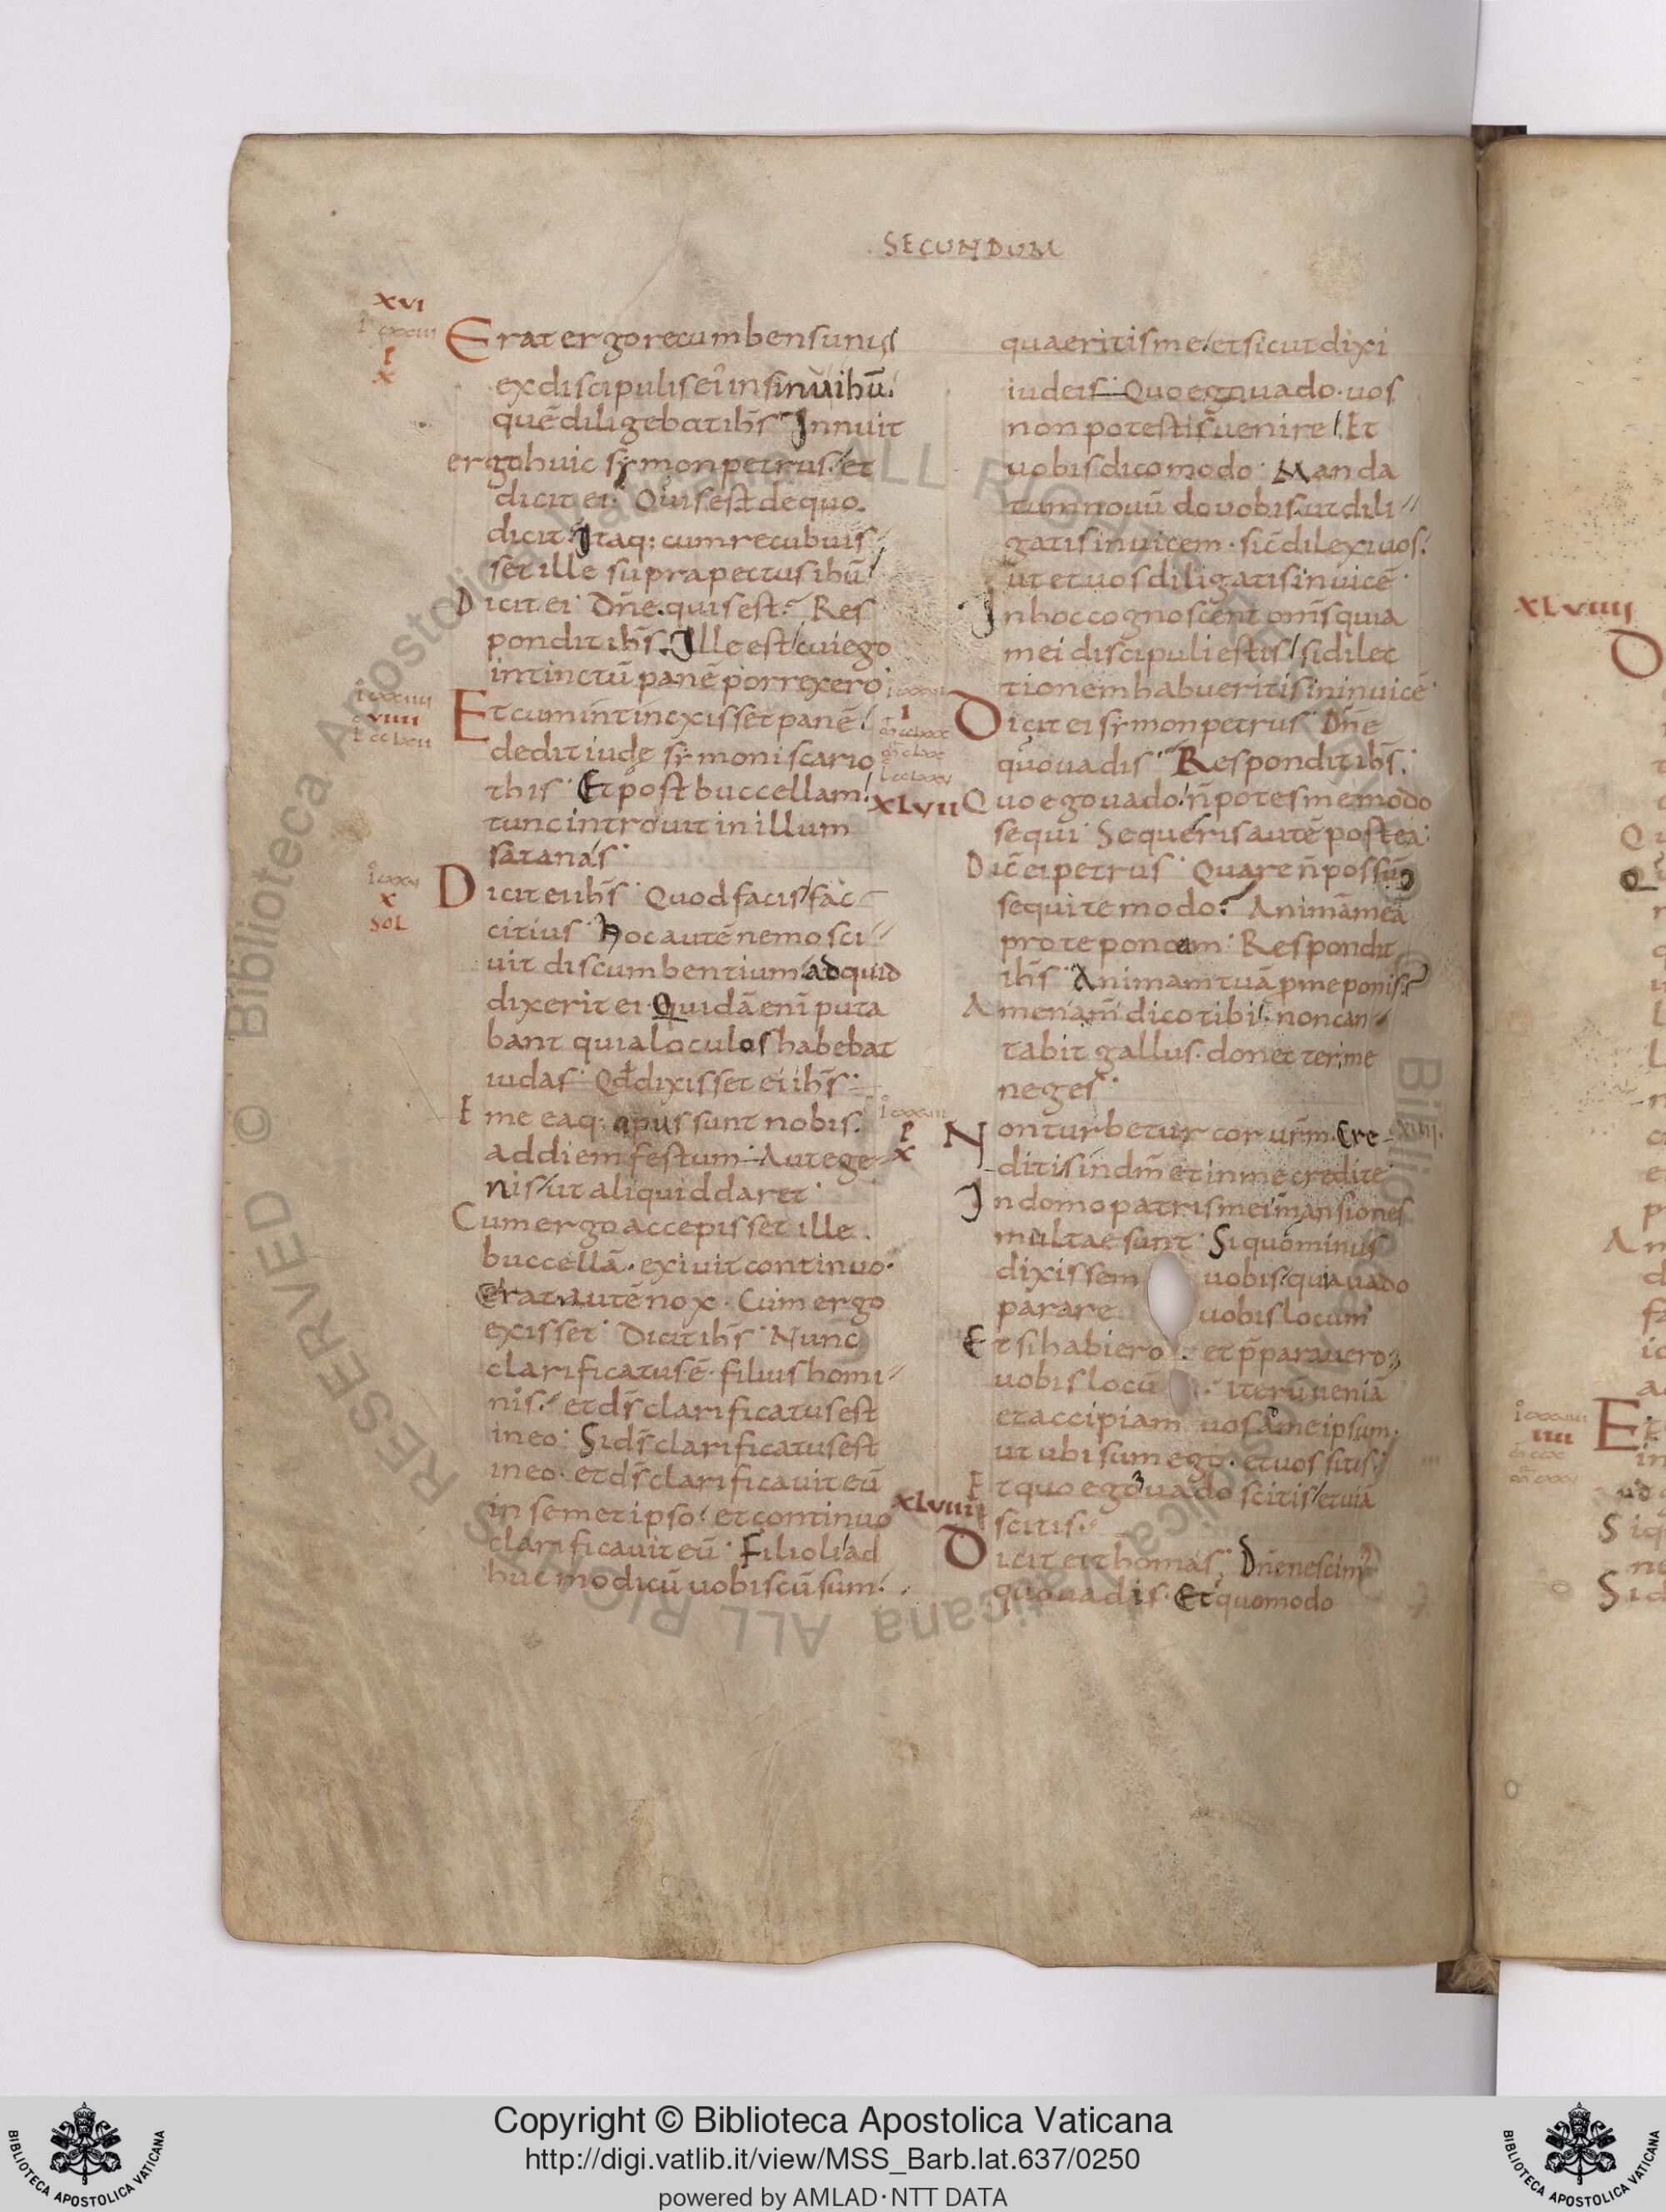 SECUNDUM
XVI
Erat ergo recumbens unus
ex discipulis ei' in sinu ihū.
quē diligebat ihs̄ Innuit
ergo huic symon petrus. et
dicit ei. Quis est de quo
dicit. Itaq; cum recubuis
set ille supra pectus ihū
Dicit ei. Dn̄e. quis est. Res
pondit ihs̄. Ille est cui ego
intinctū panē porrexero
Et cum intinxisset panē
dedit iude symoni scario
this. Et post buccellam
tunc introuit in illum
satanas.
Dicit ei ihs̄. Quod facis fac
x
SOL
citius. Hoc autē nemo sci
uit discumbentium ad quid
dixerit ei. Quidā enī puta
bant quia loculos habebat
iudas. Qd̄ dixisset ei ihs̄.
Eme ea q; opus sunt nobis.
ad diem festum. Aut ege
nis ut aliquid daret.
Cum ergo accepisset ille
buccellā. exiuit continuo.
erat autē nox. Cum ergo
exisset. Dicit ihs̄. Nunc
clarificatus ē. filius homi
nis. et ds̄ clarificatus est
in eo. Si ds̄ clarificatus est
in eo. et ds̄ clarificauit eū
in semet ipso. et continuo
clarificauit eū. Filioli ad
huc modicū uobiscū sum.
quaeritis me. et sicut dixi
iudeis. Quo ego uado. uos
non potestis uenire. Et
uobis dico modo. Manda
tum nouū do uobis. ut dili
gatis inuicem. sic̄ dilexi uos.
ut et uos diligatis inuicē.
In hoc cognoscent om̄s quia
mei discipuli estis. si dilec
tionem habueritis in inuicē.
Dicit ei symon petrus. Dn̄e
quo uadis. Respondit ihs̄.
XLVII
Quo ego uado. n̄ potes me modo
sequi. Sequeris autē postea.
Dic̄ ei petrus. Quare n̄ possū
sequi te modo. Animā meā
pro te ponam. Respondit
ihs̄. Animam tuā p me ponis.
Amen am̄ dico tibi. non can
tabit gallus. donec ter me
neges.
Non turbetur cor ur̄m. Cre
ditis in dm̄ et in me credite.
In domo patris mei mansiones
multae sunt. Si quominus
dixissem uobis. quia uado
parare uobis locum
Et si habiero. et p̄parauero
uobis locū. iterū ueniā
et accipiam uos ad me ipsum.
ut ubi sum ego. et uos sitis.
Et quo ego uado scitis et uiā
scitis.
XLVIII
Dicit ei thomas. Dn̄e nescim'
quo uadis. Et quomodo
XLVIIII
Copyright © Biblioteca Apostolica Vaticana
http://digi.vatlib.it/view/MSS_Barb.lat.637/0250
powered by AMLAD·NTT DATA
BIBLIOTECA APOSTOLICA VATICANA
BIBLIOTECA APOSTOLICA VATICANA